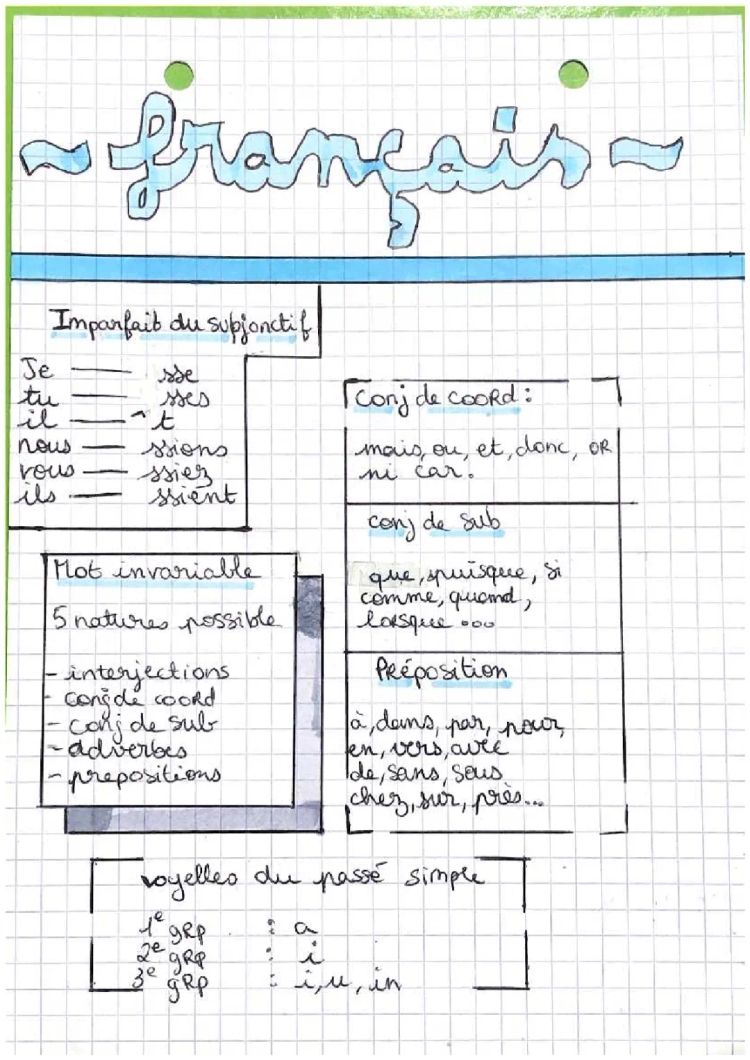 ~ français ~
Imparfait du subjonctif
Je —— sse
tu —— sses
il —— ^t
nous —— ssions
vous —— ssiez
ils —— ssient
Mot invariable
5 natures possible
- interjections
- conj de coord
- conj de sub
- adverbes
- prepositions
Conj de cooRd :
mais, ou, et, donc, OR
ni car.
conj de sub
que, puisque, si
comme, quand,
lorsque ...
PRéposition
à, dans, par, pour,
en, vers, avec
de, sans, sous
chez, sur, près...
voyelles du passé simple
1e gRp : a
2e gRp : i
3e gRp : i, u, in